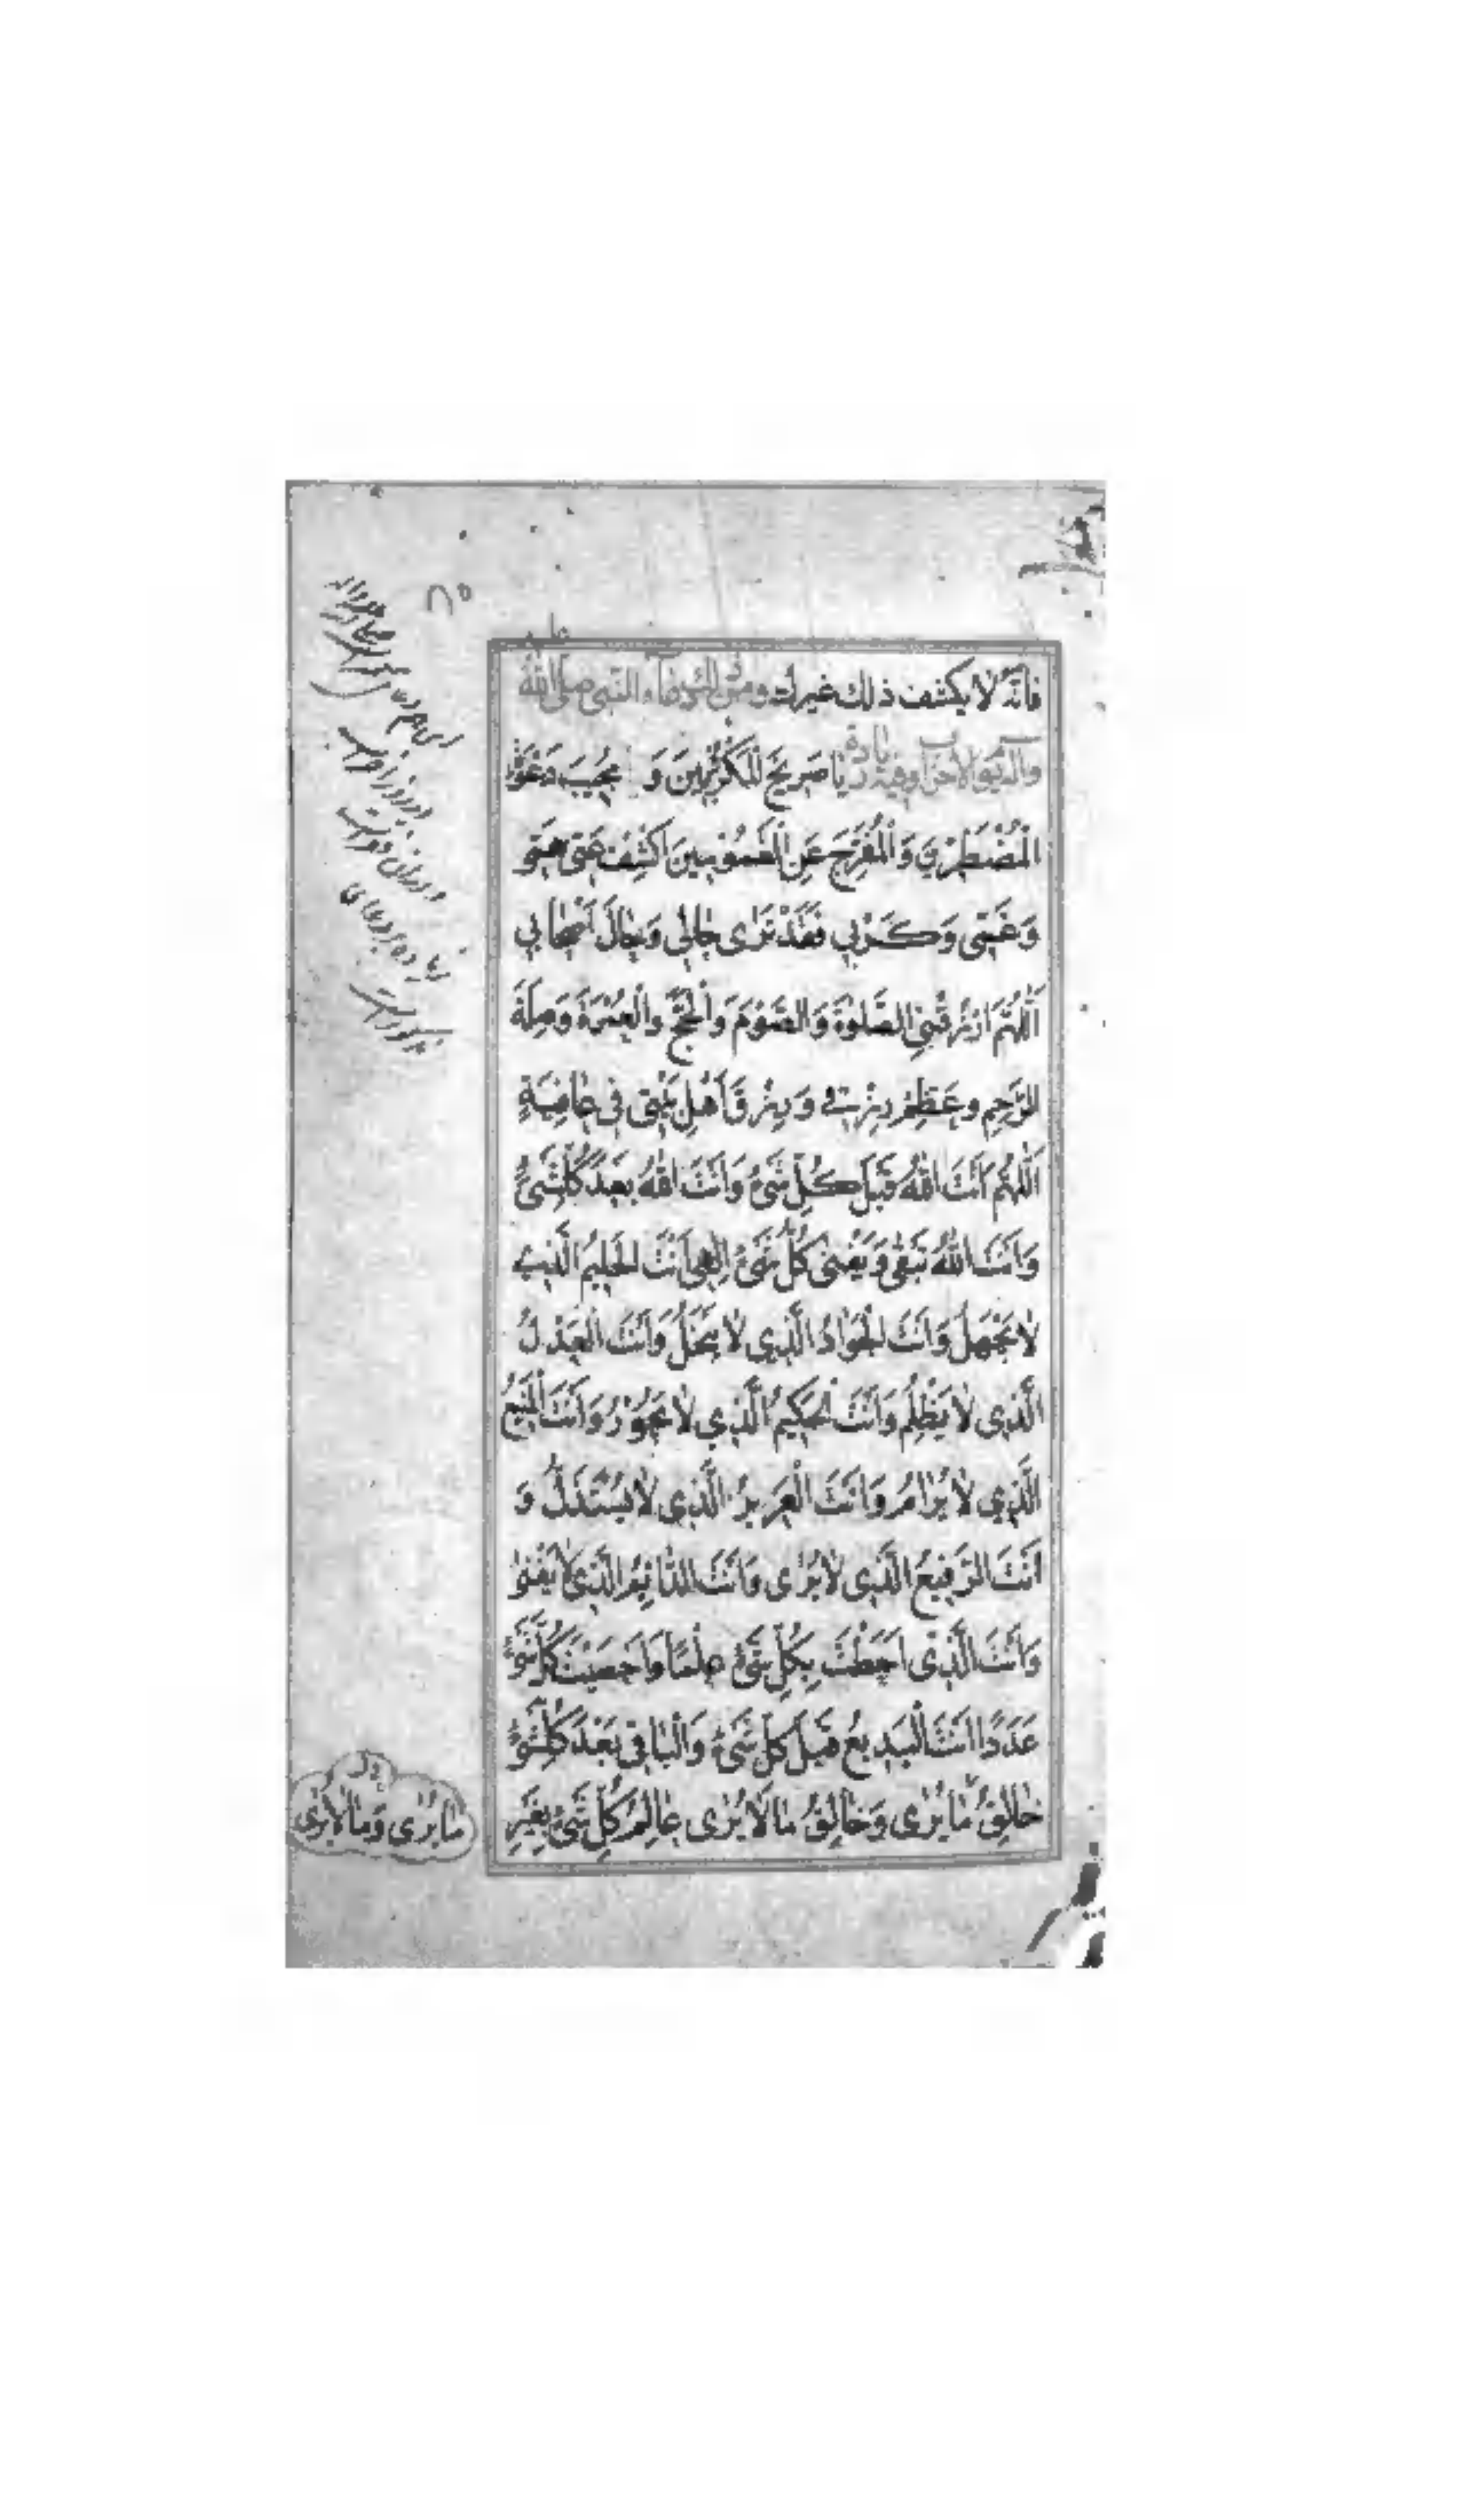 فَاِنَّهُ لَا يَكْشِفُ ذٰلِكَ غَيْرُكَ وَمِنْ ذٰلِكَ دُعَاء النَّبِى صَلَّى اللهُ عليه
وآله يوم الاحزاب وفيه زيادة يَا صَرِيخَ الْمَكْرُوبِينَ وَ مُجِيبَ دَعْوَةِ
الْمُضْطَرِّينَ وَالْمُفَرِّجَ عَنِ الْمَغْمُومِينَ اكْشِفْ عَنِّى هَمِّى
وَغَمِّى وَكَرْبِي فَقَدْ تَرٰى حَالِى وَحَالَ اَصْحَابِي
اَللّٰهُمَّ ارْزُقْنِي الصَّلٰوةَ وَالصَّوْمَ وَالْحَجَّ وَالْعُمْرَةَ وَصِلَةَ
الرَّحِمِ وَعَظِّمْ رِزْقِى وَرِزْقَ اَهْلِ بَيْتِى فِى عَافِيَةٍ
اَللّٰهُمَّ اَنْتَ اللهُ قَبْلَ كُلِّ شَىْءٍ وَاَنْتَ اللهُ بَعْدَ كُلِّ شَىْءٍ
وَاَنْتَ اللهُ تَبْقٰى وَيَفْنٰى كُلُّ شَىْءٍ اِلٰهِى اَنْتَ الْحَلِيمُ الَّذِى
لَا يَجْهَلُ وَاَنْتَ الْجَوَادُ الَّذِى لَا يَبْخَلُ وَاَنْتَ الْعَدْلُ
الَّذِى لَا يَظْلِمُ وَاَنْتَ الْحَكِيمُ الَّذِي لَا يَجُورُ وَاَنْتَ الْمَنِيعُ
الَّذِى لَا يُرَامُ وَاَنْتَ الْعَزِيزُ الَّذِى لَا يُسْتَذَلُّ وَ
اَنْتَ الرَّفِيعُ الَّذِى لَا يُرٰى وَاَنْتَ الدَّائِمُ الَّذِى لَا يَفْنٰى
وَاَنْتَ الَّذِى اَحَطْتَ بِكُلِّ شَىْءٍ عِلْمًا وَاَحْصَيْتَ كُلَّ شَىْءٍ
عَدَدًا اَنْتَ الْبَدِيعُ قَبْلَ كُلِّ شَىْءٍ وَالْبَاقِى بَعْدَ كُلِّ شَىْءٍ
خَالِقُ مَا يُرٰى وَخَالِقُ مَا لَا يُرٰى عَالِمُ كُلِّ شَىْءٍ بِغَيْرِ
مَا يُرٰى وَمَا لَا يُرٰى